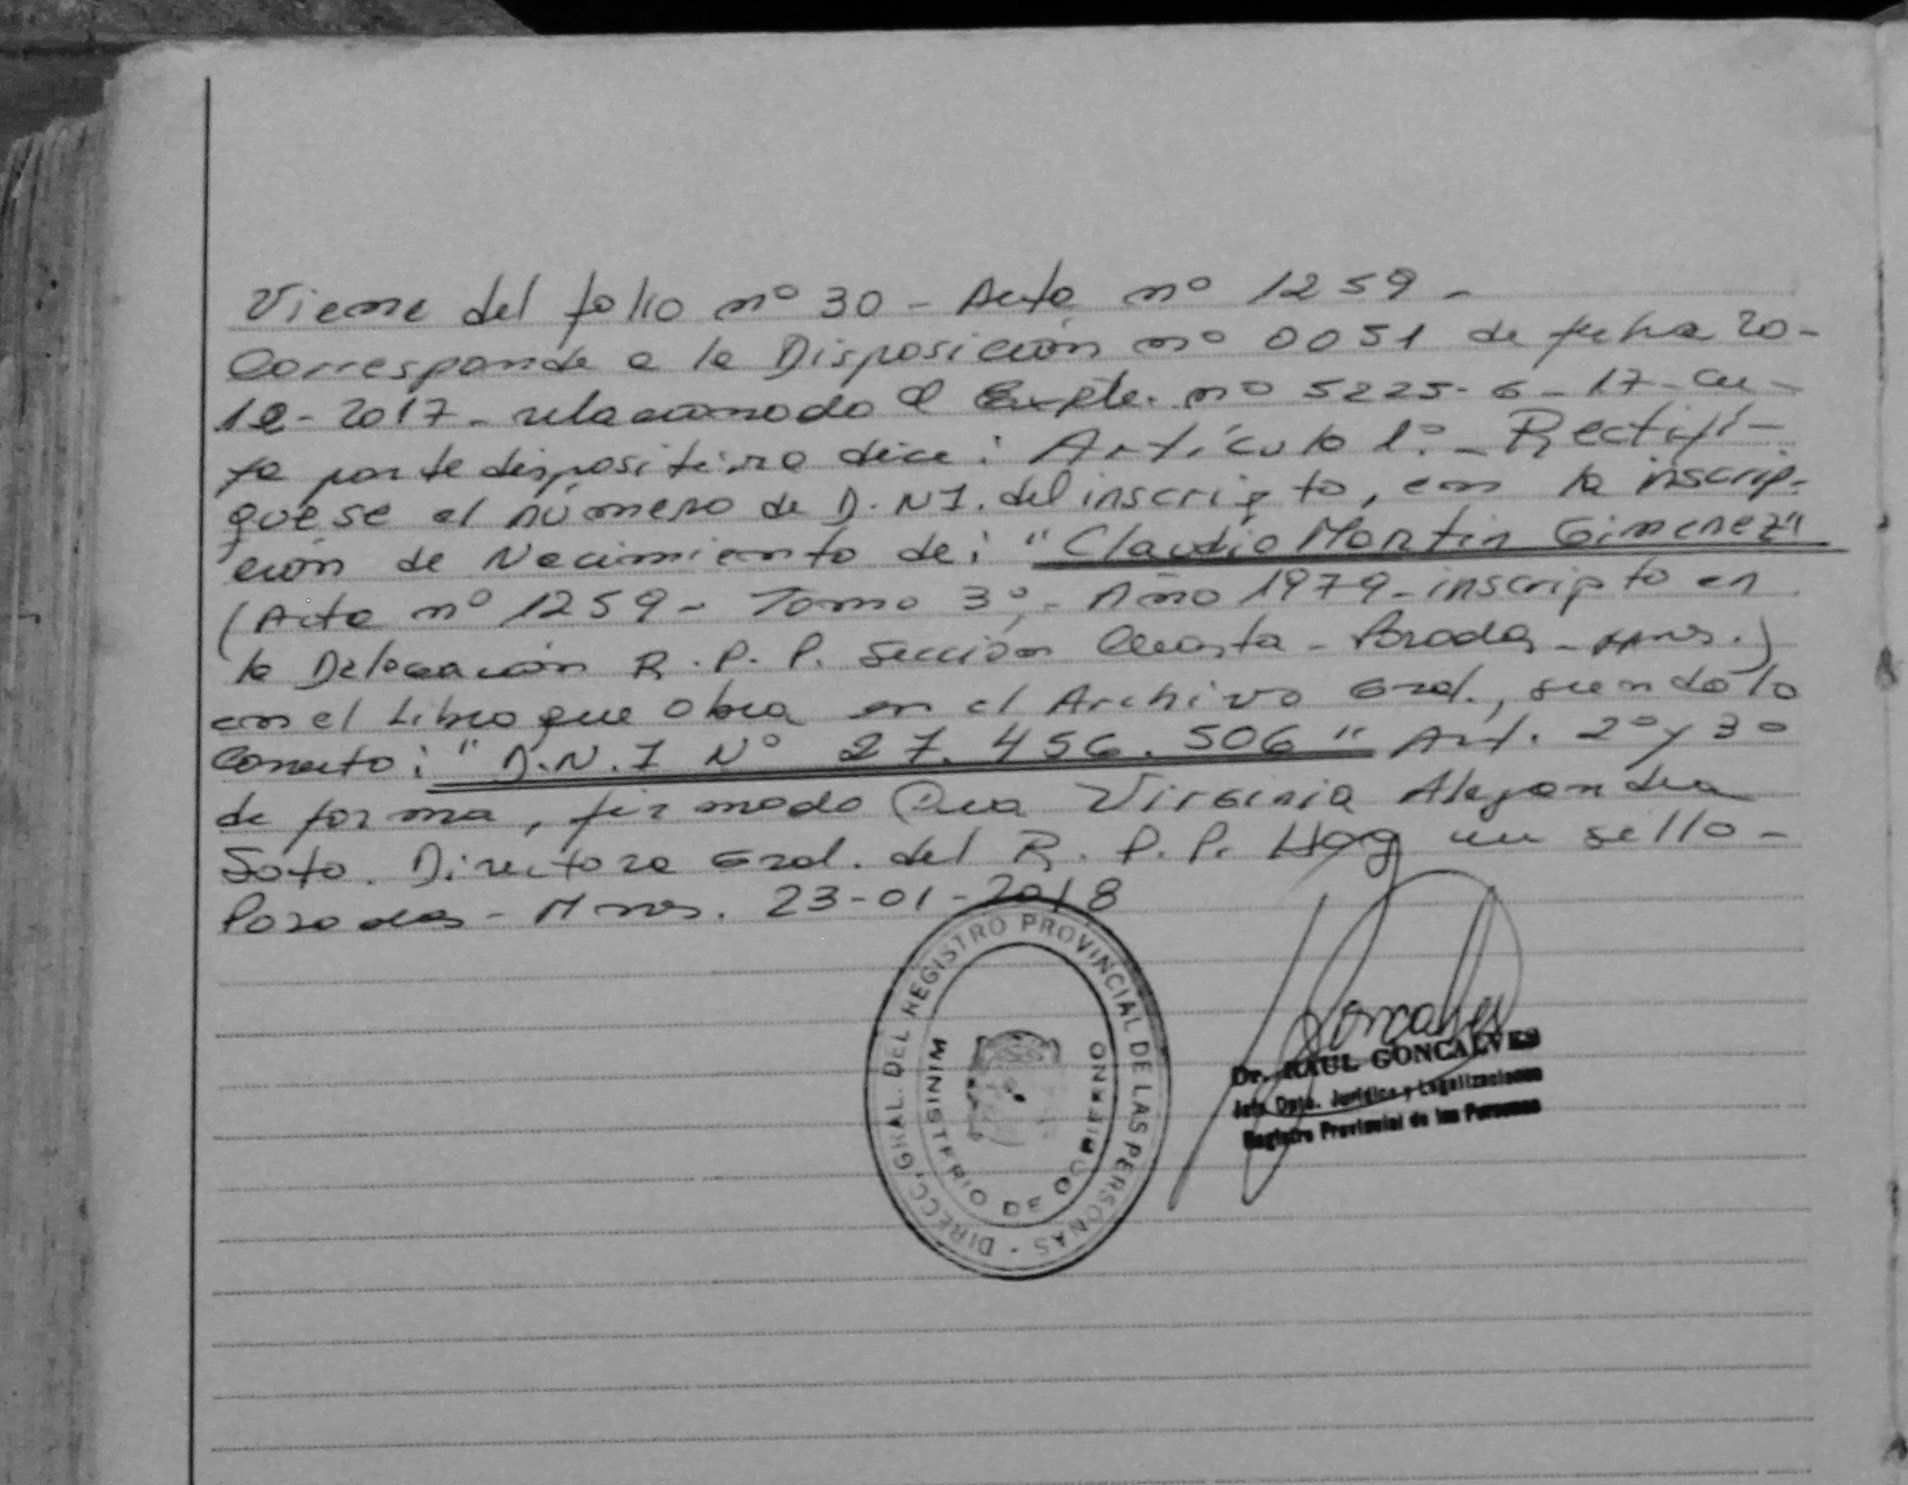 Viene del folio nº 30 - Acta nº 1259 -
Corresponde a la Disposición nº 0051 de fecha 20-
12-2017 - relacionado al Expte. nº 5225-6-17- Cu-
ya parte dispositiva dice: Artículo 1º - Rectifí-
quese el número de D.N.I. del inscripto, en la inscrip-
ción de Nacimiento de: "Claudio Martin Gimenez"
(Acta nº 1259 - Tomo 3º - Año 1979 - inscripto en
la Delegación R.P.P. Sección Cuarta - Posadas - Mnes.)
en el Libro que obra en el Archivo Gral., siendo lo
Correcto: "D.N.I Nº 27.456.506" Art. 2º y 3º
de forma, firmado Dra Virginia Alejandra
Soto. Directora Gral. del R.P.P. Hay un sello -
Posadas - Mnes. 23-01-2018
DIRECC. GRAL. DEL REGISTRO PROVINCIAL DE LAS PERSONAS -
MINISTERIO DE GOBIERNO
Goncalves
Dr. RAUL GONCALVES
Jefe Dpto. Jurídico y Legalizaciones
Registro Provincial de las Personas